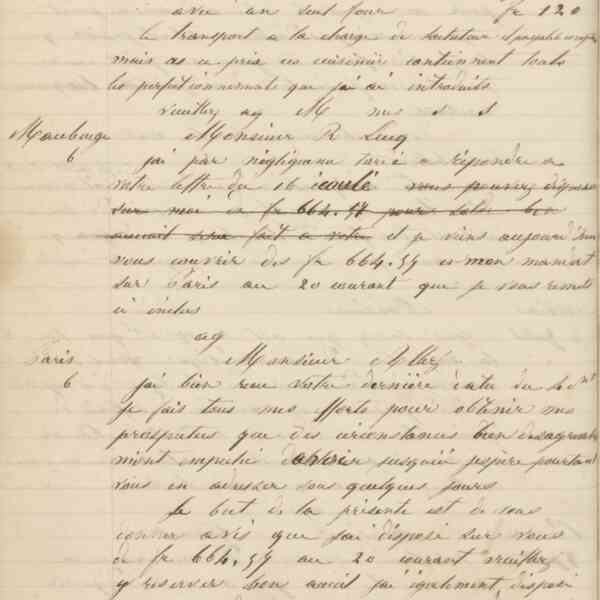 avec un seul four fr 120
le transport a la charge de
mais a ce prix ces cuisinières contiennent touts
les perfectionnements que j'ai introduits
Veuillez ag M mes s s
Maubeuge Monsieur R Lucq
6 j'ai par négligence tardé a répondre a
votre lettre du 16 écoulé vous pouviez disposer
sur moi de fr 664.59 pour solde bon
accueil sera fait a votre et je viens aujourd'hui
vous couvrir des fr 664.59 en mon mandat
sur Paris au 20 courant que je vous remets
ci inclus
ag
Paris Monsieur
6 j'ai bien reçu votre dernière datée du
je fais tous mes efforts pour obtenir mes
prospectus que des circonstances bien désagréables
m'ont empeché d'avoir jusqu'ici j'espère pourtant
vous en adresser sous quelques jours
Le but de la présente est de vous
donner avis que j'ai disposé sur vous
de fr 664.59 au 20 courant veuillez
y reserver bon accueil j'ai également disposé